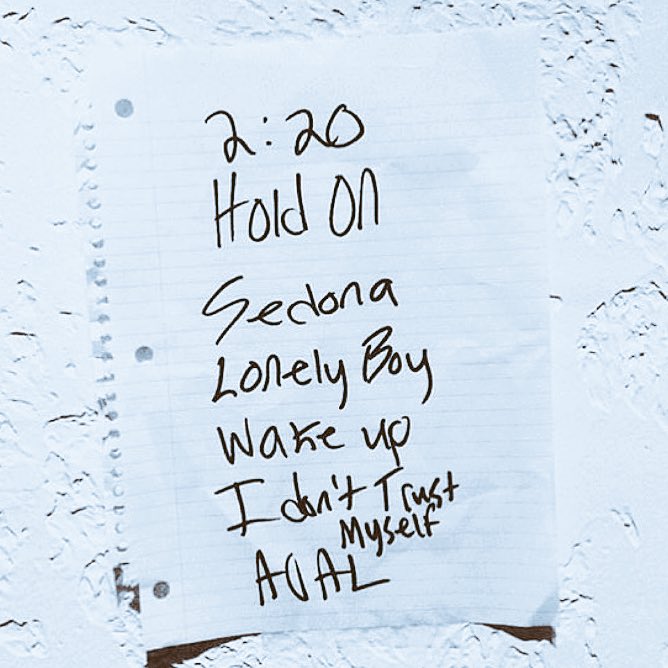 2:20
Hold On
Sedona
Lonely Boy
Wake up
I don't Trust
Myself
AOAL